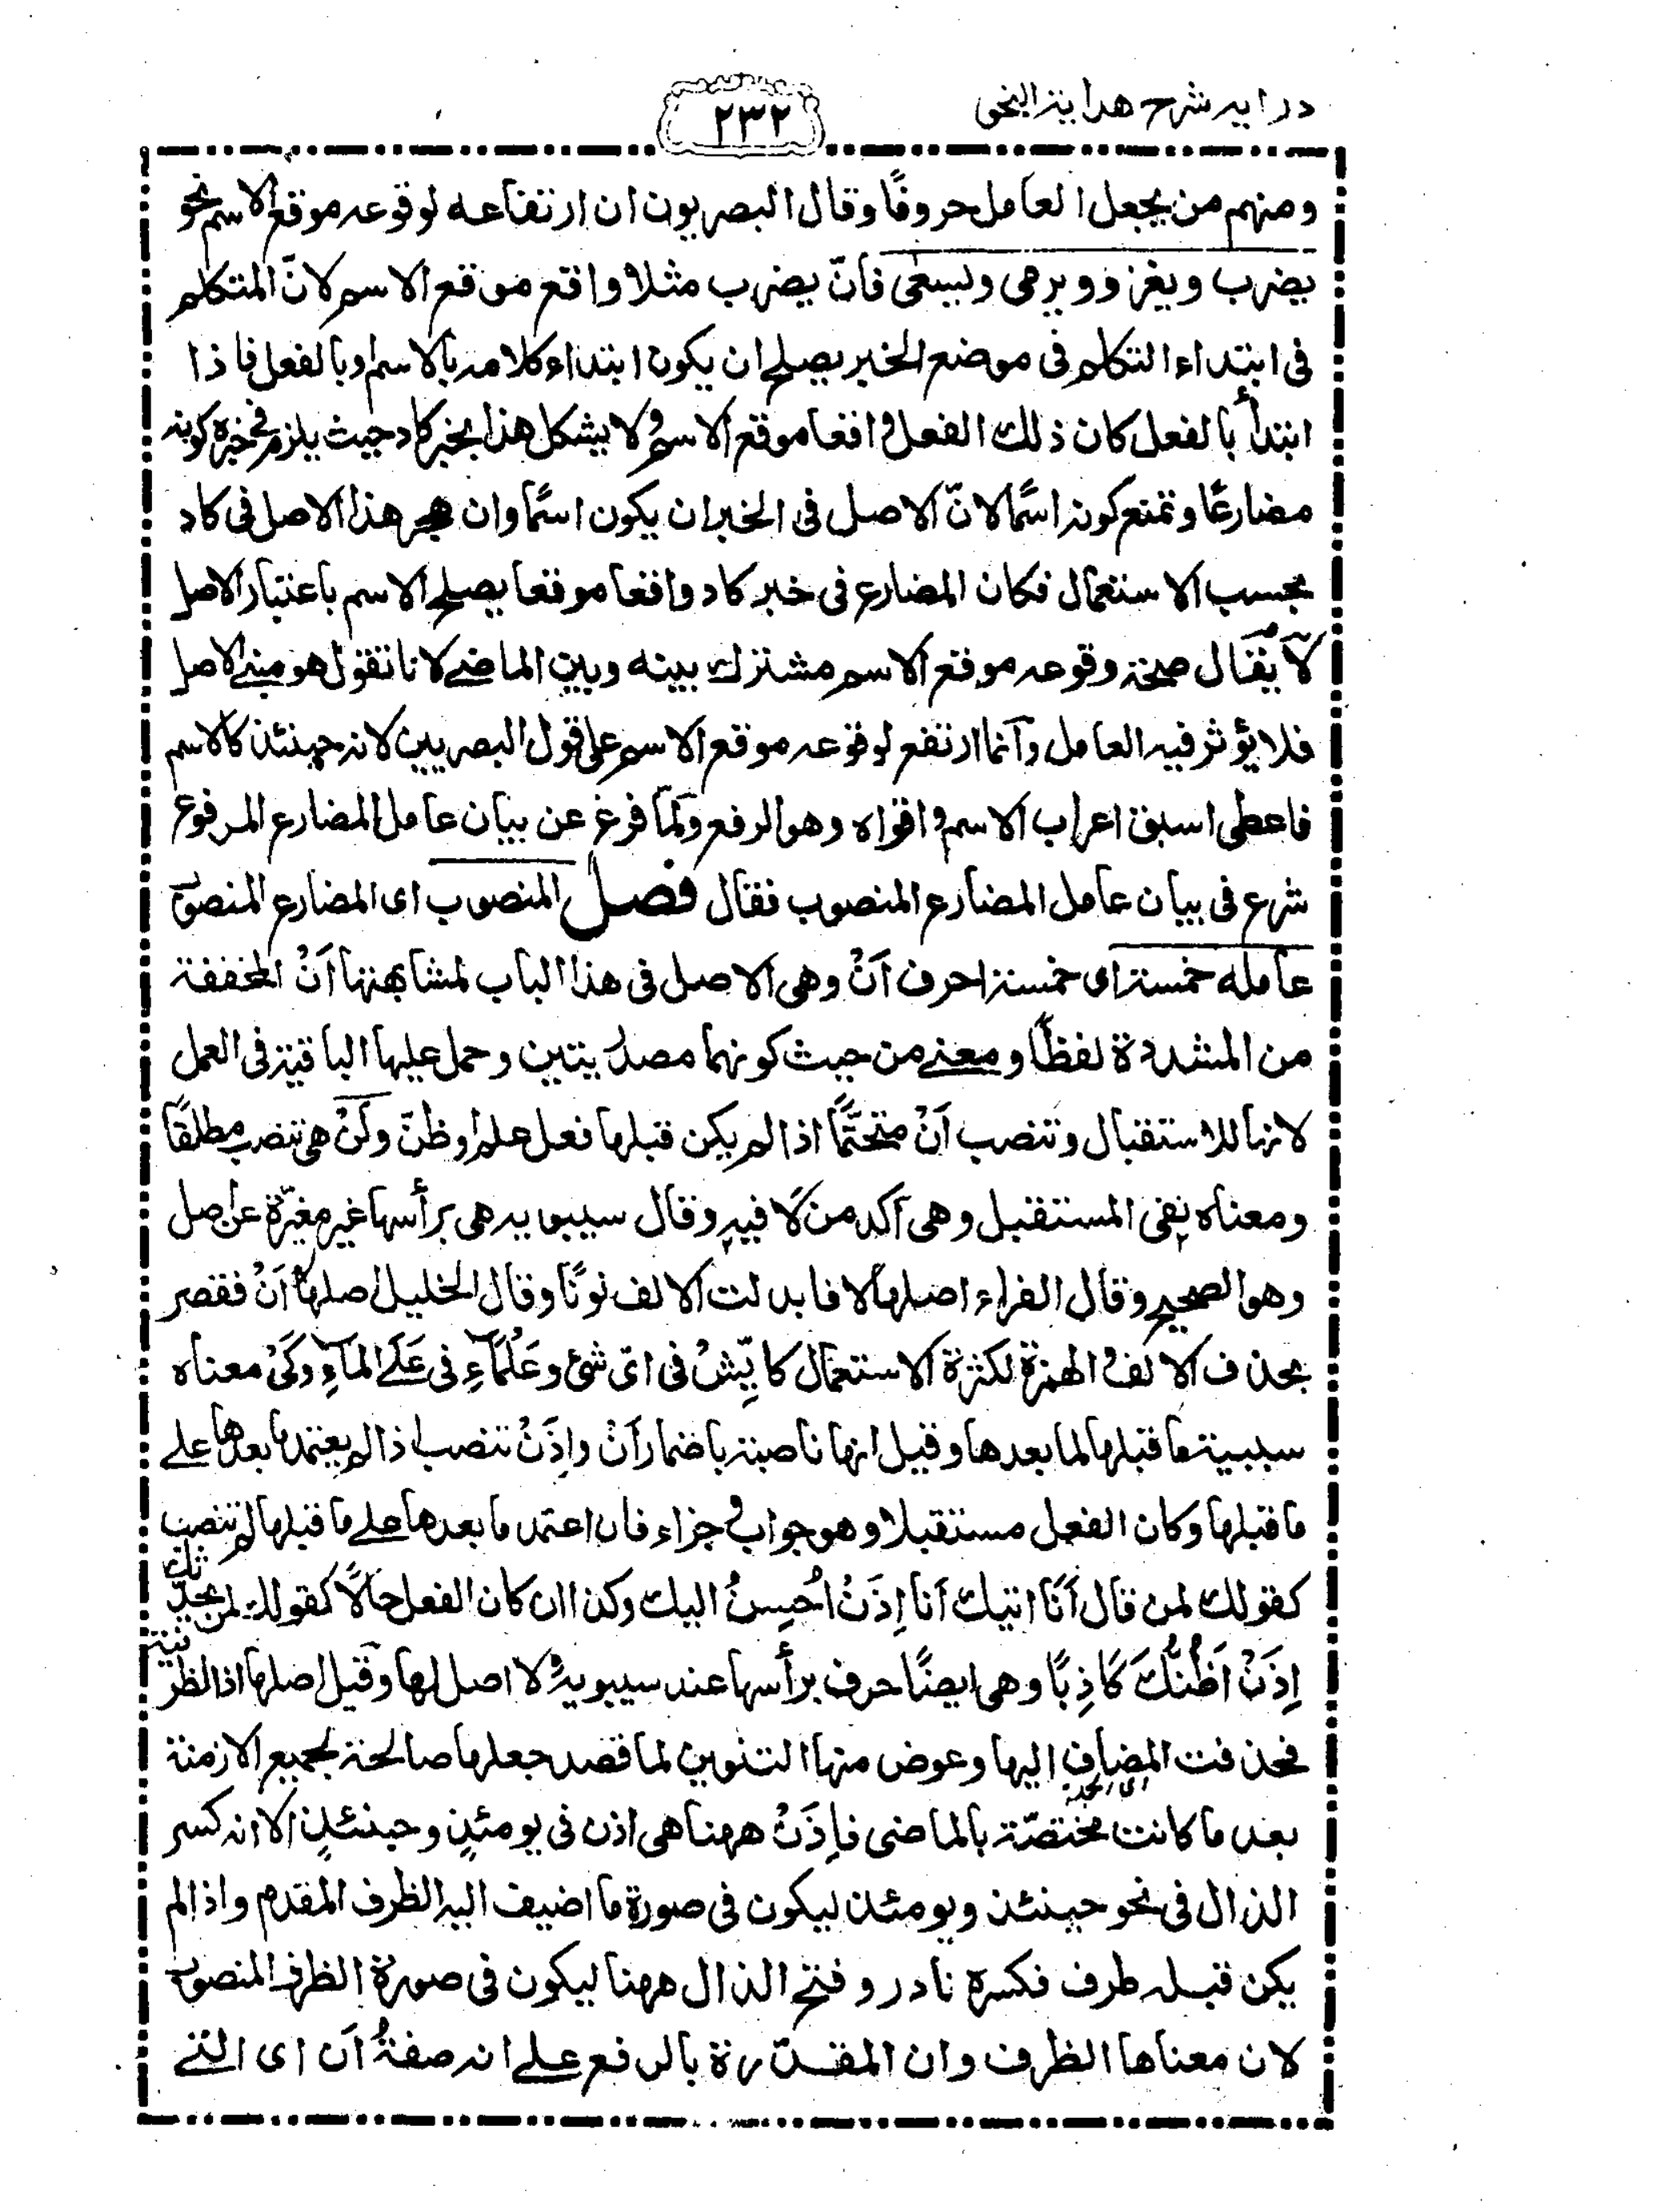 درايہ شرح هداية النحو
٢٣٢
ومنهم من يجعل العامل حروفًا وقال البصريون ان ارتفاعه لوقوعه موقع الاسم نحو
يضرب ويغزو ويرمى ويسعى فانّ يضرب مثلا واقع موقع الاسم لانّ المتكلم
فى ابتداء التكلم فى موضع الخبر يصلح ان يكون ابتداء كلامه بالاسم او بالفعل فاذا
ابتدأ بالفعل كان ذلك الفعل واقعا موقع الاسم ولا يشكل هذا بخبر كاد حيث يلزم فى خبره كونه
مضارعًا وتمتنع كونه اسمًا لانّ الاصل فى الخبر ان يكون اسمًا وان هجر هذا الاصل فى كاد
بحسب الاستعمال فكان المضارع فى خبر كاد واقعا موقعا يصلح الاسم باعتبار الاصل
لا يقال صحة وقوعه موقع الاسم مشترك بينه وبين الماضے لانا نقول هو مبنے الاصل
فلا يؤثر فيه العامل وانما ارتفع لوقوعه موقع الاسم على قول البصريين لانه حينئذ كالاسم
فاعطى اسبق اعراب الاسم واقواه وهو الرفع ولمّا فرغ عن بيان عامل المضارع المرفوع
شرع فى بيان عامل المضارع المنصوب فقال فصل المنصوب اى المضارع المنصوب
عامله خمسة اى خمسة احرف اَنْ وهى الاصل فى هذا الباب لمشابهتها اَنْ المخففة
من المشددة لفظًا ومعنے من حيث كونهما مصدريتين وحمل عليها الباقية فى العمل
لانها للاستقبال وتنصب اَنْ متحتّمًا اذا لم يكن قبلها فعل علم او ظنّ ولَنْ هى تنصب مطلقًا
ومعناه نفى المستقبل وهى آكد من لا فيه وقال سيبويه هى برأسها غير مغيّرة عن اصل
وهو الصحيح وقال الفراء اصلها لا فابدلت الالف نونًا وقال الخليل اصلها لا اَنْ فقصر
بحذف الالف والهمزة لكثرة الاستعمال كايّشْ فى اىّ شئ وعَلْمَآءِ فى عَلَے المَآءِ وكَىْ معناه
سببية ما قبلها لما بعدها وقيل انها ناصبة باضمار اَنْ واِذَنْ تنصب اذا لم يعتمد ما بعدها علے
ما قبلها وكان الفعل مستقبلا وهو جواب وجزاء فان اعتمد ما بعدها علے ما قبلها لم تنصب
كقولك لمن قال اَنَا اتيك اَنا اِذَنْ اُحْسِنُ اليك وكذا ان كان الفعل حالًا كقولك لمن يحدّثك
اِذَنْ اَظُنُّكَ كَاذِبًا وهى ايضًا حرف برأسها عند سيبويه ولا اصل لها وقيل اصلها اذ الظرفية
فحذفت المضاف اليها وعوض منها التنوين لما قصد جعلها صالحة لجميع الازمنة
بعد ما كانت مختصّة بالماضى فاِذَنْ ههنا هى اذن فى يومئذٍ وحينئذٍ الا انه كسر
الذال فى نحو حينئذ ويومئذ ليكون فى صورة ما اضيف اليه الظرف المقدم واذا لم
يكن قبله طرف فكسره نادر وفتح الذال ههنا ليكون فى صورة الظرف المنصوب
لان معناها الظرف وان المقدّرة بالرفع علے انه صفةُ اَن اى التے